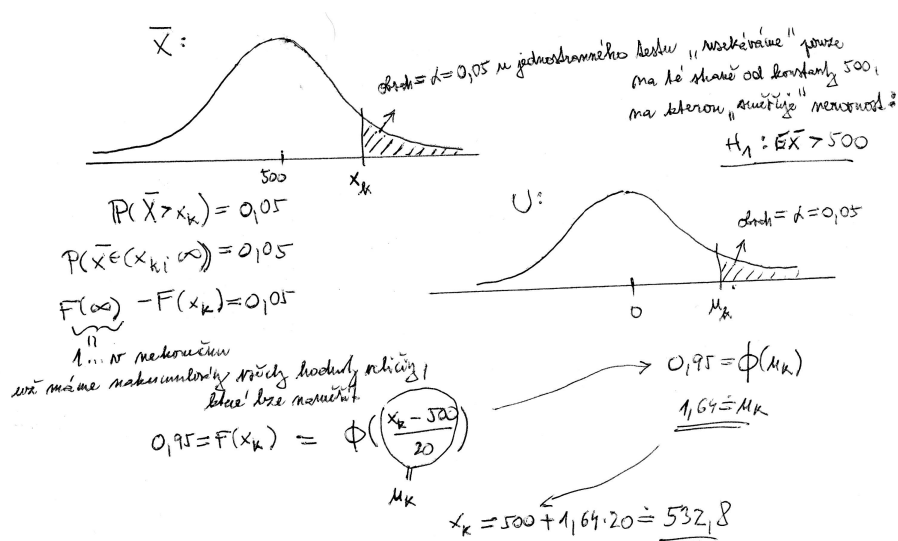 X̄ :
obsah = α = 0,05 u jednostranného testu „usekáváme" pouze
na té straně od konstanty 500,
na kterou „směřuje" nerovnost:
H₁ : EX̄ > 500
500
x_k
P(X̄ > x_k) = 0,05
P(X̄ ∈ (x_k; ∞)) = 0,05
F(∞) - F(x_k) = 0,05
1... v nekonečnu
už máme nakumulovány všechny hodnoty veličiny,
které lze naměřit
0,95 = F(x_k) = Φ((x_k - 500)/20)
u_k
U:
obsah = α = 0,05
0
u_k
0,95 = Φ(u_k)
1,64 ≐ u_k
x_k = 500 + 1,64·20 ≐ 532,8